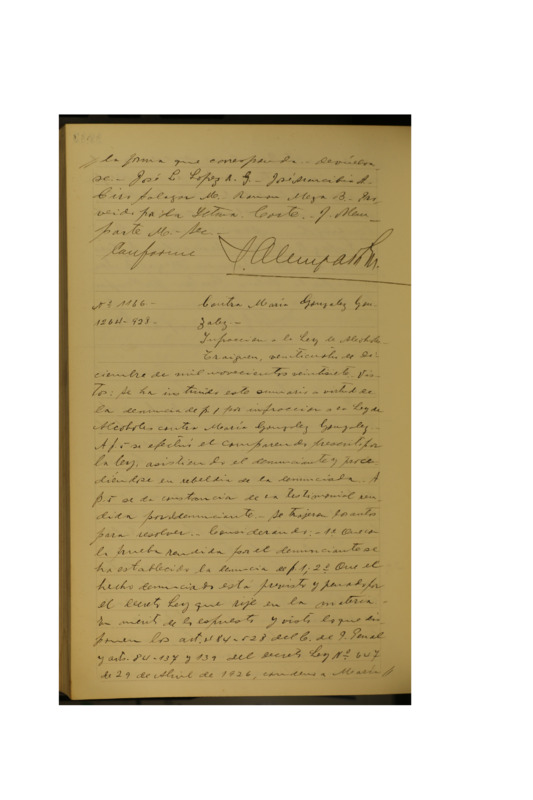 la forma que corresponda - devuélva
se - José L. Lopez A. G - José
Ciro Salazar M. Ramon Meza B. - Pro
veido por la Iltma. Corte. J. Alem
parte M. - Sec -
Conforme
J. Alemparte M.
Nº 1166 - Contra María Gonzalez Gon
1264 - 928 - zalez -
Infraccion a la Ley de Alcoholes -
Traiguen, veinticuatro de Di
ciembre de mil novecientos veintiocho. Vis
tos: se ha instruido este sumario a virtud de
la denuncia de f. 1 por infraccion a la Ley de
Alcoholes contra María Gonzalez Gonzalez -
A f. 5 se efectuó el comparendo prescrito por
la ley, asistiendo el denunciante y proce
diéndose en rebeldía de la denunciada. A
f. 5 se da constancia de la testimonial ren
dida por el denunciante - Se trajeron los autos
para resolver - Considerando: - 1º Que con
la prueba rendida por el denunciante se
ha establecido la denuncia de f 1; 2º Que el
hecho denunciado está previsto y penado por
el decreto Ley que rije en la materia.
En merito de lo expuesto y visto lo que dis
ponen los arts. 84 - 528 del C. de P. Penal
y arts. 84 - 137 y 139 del decreto Ley Nº 647
de 29 de Abril de 1926, condeno a María